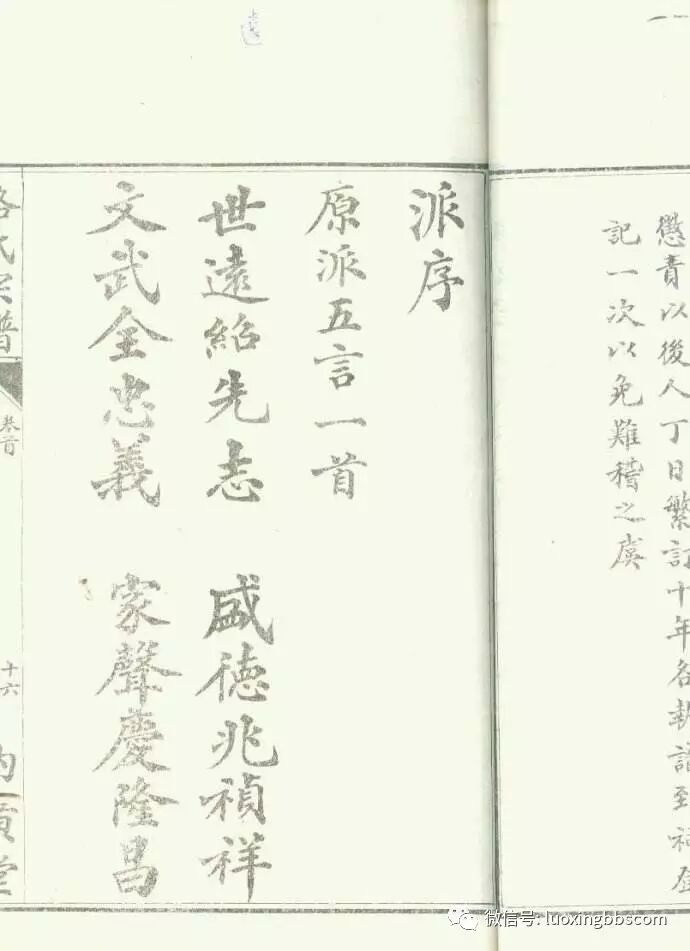 懲責以後人丁日繁訂十年各執譜至祠登
記一次以免難稽之虞
派序
原派五言一首
世遠紹先志 盛德兆禎祥
文武全忠義 家聲慶隆昌
氏宗譜
卷首
十六
堂
遠
一
微信号: luoxingbbscom